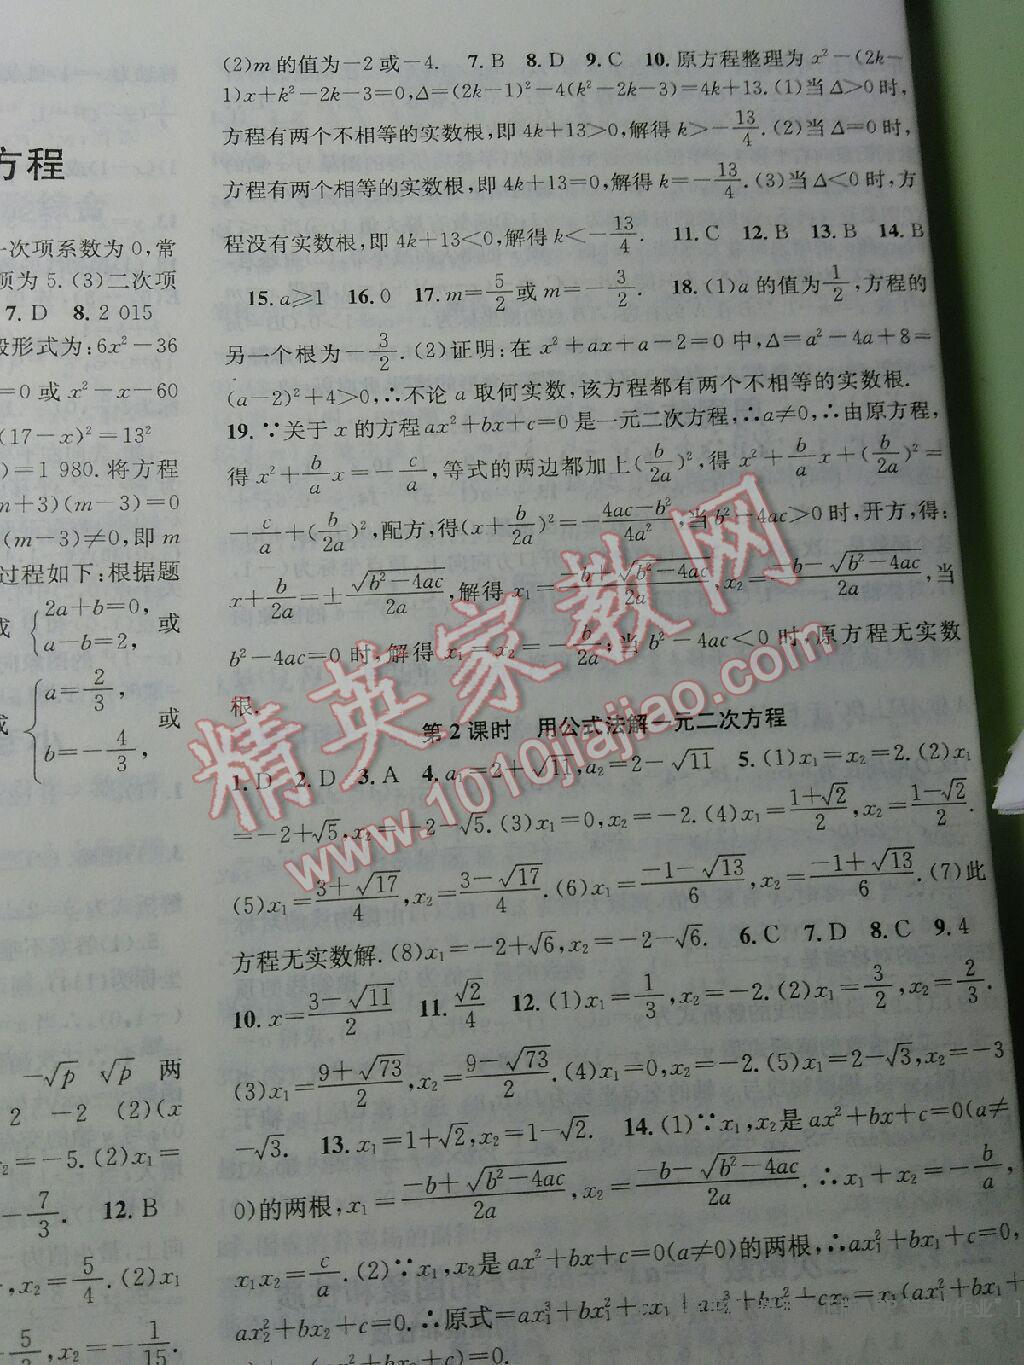 方程
一次项系数为 0,常
项为 5.(3)二次项
7. D 8. 2 015
般形式为:6x²-36
=0 或 x²-x-60
(17-x)²=13²
)=1 980.将方程
m+3)(m-3)=0
(m-3)≠0,即 m
过程如下:根据题
或 {2a+b=0, a-b=2, 或
或 {a=2/3, b=-4/3, 或
-√p √p 两
2 -2 (2)(x
x₂=-5.(2)x₁=
-7/3. 12. B
,x₂=5/4.(2)x₁
5/3,x₂=-1/15.
(2)m 的值为-2 或-4. 7. B 8. D 9. C 10. 原方程整理为 x²-(2k-
1)x+k²-2k-3=0,Δ=(2k-1)²-4(k²-2k-3)=4k+13.(1)当 Δ>0 时,
方程有两个不相等的实数根,即 4k+13>0,解得 k>-13/4.(2)当 Δ=0 时,
方程有两个相等的实数根,即 4k+13=0,解得 k=-13/4.(3)当 Δ<0 时,方
程没有实数根,即 4k+13<0,解得 k<-13/4. 11. C 12. B 13. B 14. B
15. a≥1 16. 0 17. m=5/2或 m=-3/2. 18. (1)a 的值为1/2,方程的
另一个根为-3/2.(2)证明:在 x²+ax+a-2=0 中,Δ=a²-4a+8=
(a-2)²+4>0,∴不论 a 取何实数,该方程都有两个不相等的实数根.
19. ∵关于 x 的方程 ax²+bx+c=0 是一元二次方程,∴a≠0,∴由原方程,
得 x²+b/a x=-c/a,等式的两边都加上(b/2a)²,得 x²+b/a x+(b/2a)²=
-c/a+(b/2a)²,配方,得(x+b/2a)²=-(4ac-b²)/4a²,当 b²-4ac>0 时,开方,得:
x+b/2a=±√(b²-4ac)/2a,解得 x₁=(-b+√(b²-4ac))/2a,x₂=(-b-√(b²-4ac))/2a,当
b²-4ac=0 时,解得 x₁=x₂=-b/2a;当 b²-4ac<0 时,原方程无实数
根.
第 2 课时 用公式法解一元二次方程
1. D 2. D 3. A 4. a₁=2+√11,a₂=2-√11 5. (1)x₁=x₂=2.(2)x₁
=-2+√5,x₂=-2-√5.(3)x₁=0,x₂=-2.(4)x₁=(1+√2)/2,x₂=(1-√2)/2.
(5)x₁=(3+√17)/4,x₂=(3-√17)/4.(6)x₁=(-1-√13)/6,x₂=(-1+√13)/6.(7)此
方程无实数解.(8)x₁=-2+√6,x₂=-2-√6. 6. C 7. D 8. C 9. 4
10. x=(3-√11)/2 11. √2/4 12. (1)x₁=1/3,x₂=-2.(2)x₁=3/2,x₂=2/3.
(3)x₁=(9+√73)/2,x₂=(9-√73)/2.(4)x₁=0,x₂=-2.(5)x₁=2-√3,x₂=-3
-√3. 13. x₁=1+√2,x₂=1-√2. 14. (1)∵x₁,x₂是 ax²+bx+c=0(a≠
0)的两根,x₁=(-b+√(b²-4ac))/2a,x₂=(-b-√(b²-4ac))/2a.∴x₁+x₂=-b/a,
x₁x₂=c/a.(2)∵x₁,x₂是 ax²+bx+c=0(a≠0)的两根,∴ax₁²+bx₁+c=0,
ax₂²+bx₂+c=0.∴原式=ax₁³+bx₁²+cx₁+ax₂³+bx₂²+cx₂=x₁(ax₁²+bx₁+
精英家教网
www.1010jiajiao.com